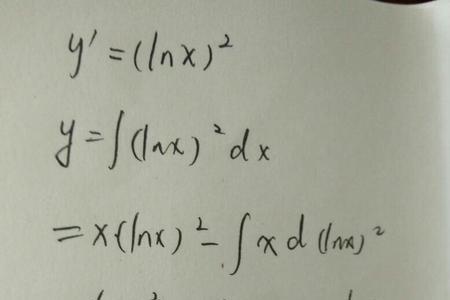 y' = (lnx)²
y = ∫(lnx)²dx
= x(lnx)² - ∫xd(lnx)²